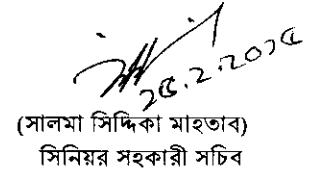 ২৫.২.২০১৫
(সালমা সিদ্দিকা মাহতাব)
সিনিয়র সহকারী সচিব